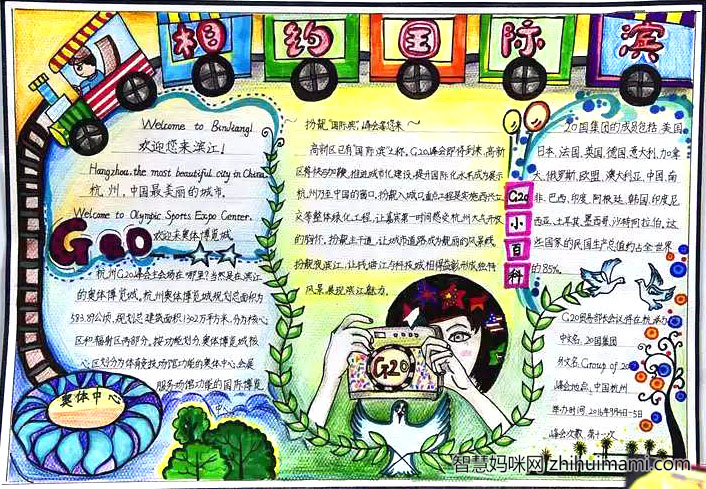 相约国际滨
Welcome to Binjiang!
欢迎您来滨江!
Hangzhou, the most beautiful city in China.
杭州,中国最美丽的城市。
Welcome to Olympic Sports Expo Center.
欢迎来奥体博览城
G20
杭州G20峰会主会场在哪里?当然是在滨江
的奥体博览城。杭州奥体博览城规划总面积为
583.89公顷,规划总建筑面积1302万平方米,分为核心
区和辐射区两部分。按功能划分,奥体博览城核
心区划分为体育竞技场馆功能的奥体中心,会展
服务场馆功能的国际博览
中心。
奥体中心
~扮靓“国际滨”,峰会等您来~
高新区已有“国际滨”之称。G20峰会即将到来,高新
区将快马加鞭,推进城市化建设,提升国际化水平,成为展示
杭州乃至中国的窗口。扮靓入城口重点工程是实施西兴立
交等整体绿化工程,让嘉宾第一时间感受杭州大气开放
的胸怀。扮靓主干道,让城市道路成为靓丽的风景线。
扮靓夜滨江,让钱塘江与科技城相得益彰,形成独特
风景展现滨江魅力。
G20
G20
小
百
科
20国集团的成员包括:美国、
日本、法国、英国、德国、意大利、加拿
大、俄罗斯、欧盟、澳大利亚、中国、南
非、巴西、印度、阿根廷、韩国、印度尼
西亚、土耳其、墨西哥、沙特阿拉伯。这
些国家的民国生产总值约占全世界
的85%。
G20贸易部长会议将在杭举行
中文名:20国集团
外文名:Group of 20
峰会地点:中国杭州
举办时间:2016年9月4日-5日
峰会次数:第十一次
智慧妈咪网 zhihuimami.com